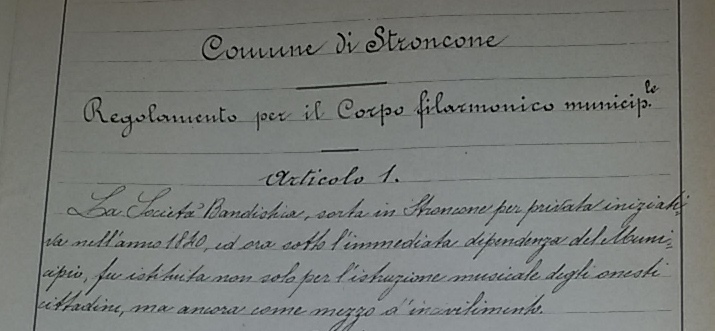 Comune di Stroncone
Regolamento per il Corpo filarmonico municip.le
Articolo 1.
La Società Bandistica, sorta in Stroncone per privata iniziati-
va nell'anno 1820, ed ora sotto l'immediata dipendenza del Muni-
cipio, fu istituita non solo per l'istruzione musicale degli onesti
cittadini, ma ancora come mezzo d'incivilimento.